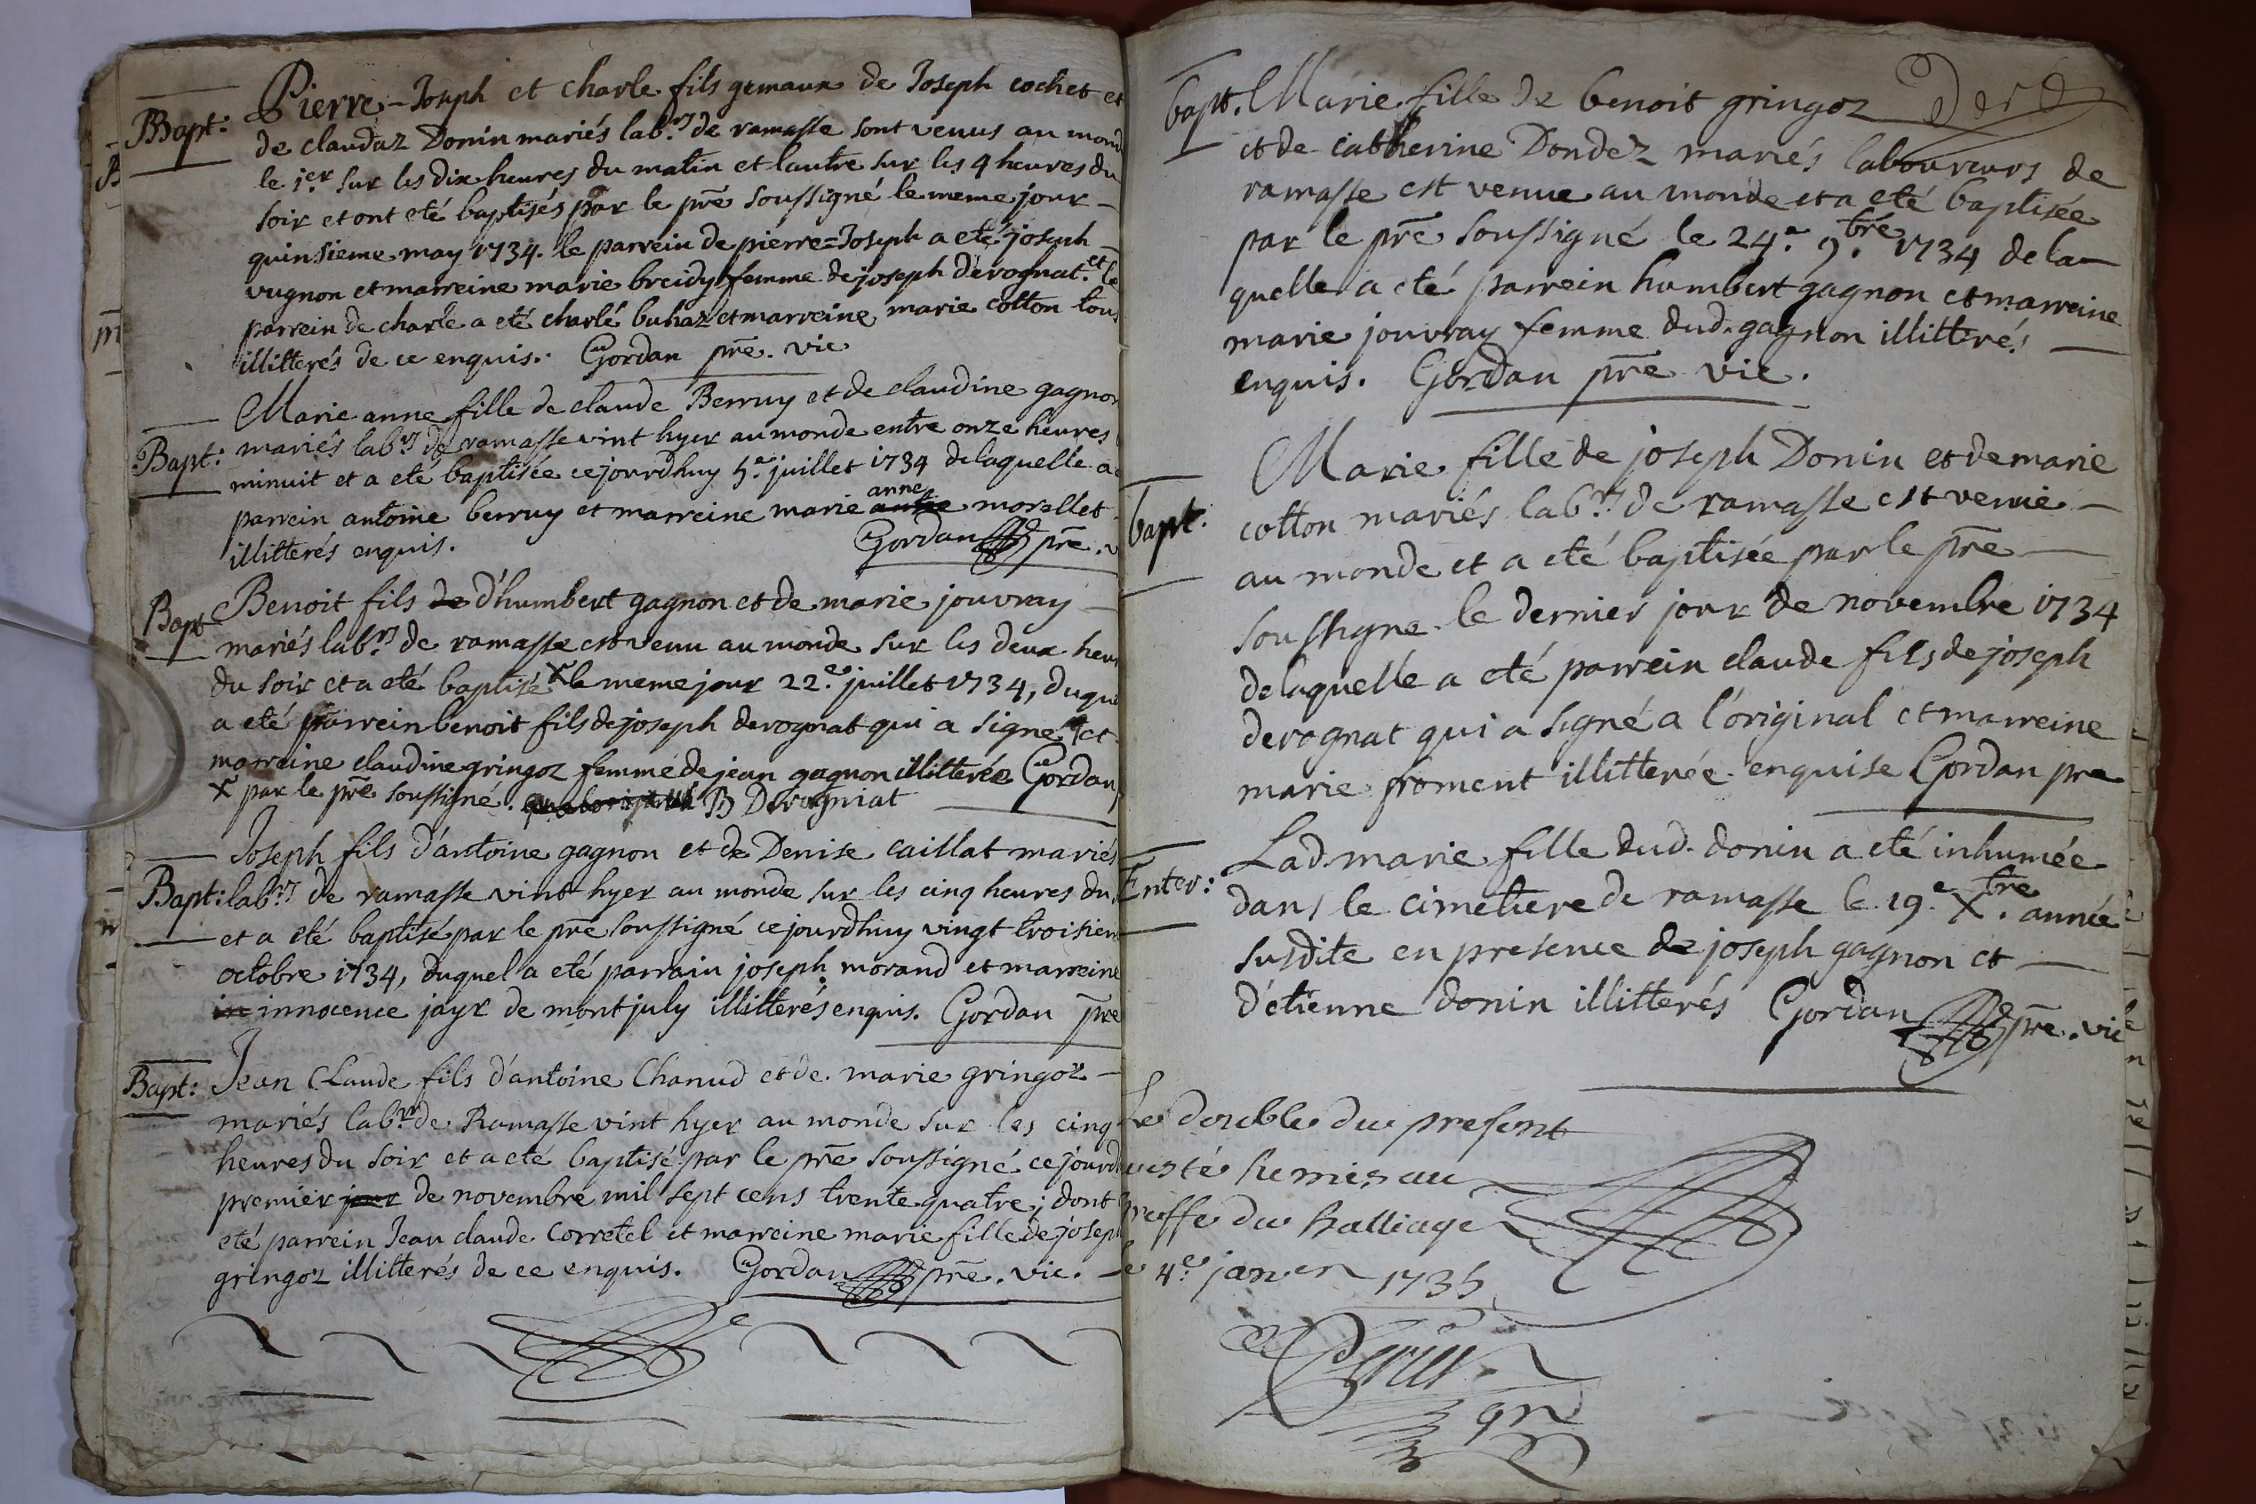 Bapt:
Pierre-Joseph et charle fils gemaux de Joseph cochet et
de claudaz Donin mariés labrs de ramasse sont venus au mond
le 1er sur les dix heures du matin et lautre sur les 4 heures du
soir et ont eté baptisés par le pre soussigné le meme jour
quinsieme may 1734. le parrein de pierre=Joseph a eté joseph
vugnon et marreine marie breidy femme de joseph derognat. et le
parrein de charle a eté charle buhaz et marreine marie cotton tous
illitterés de ce enquis. Gordan pre. vic
Bapt:
Marie anne fille de claude Berruy et de claudine gagnon
mariés labrs de ramasse vint hyer au monde entre onze heures
minuit et a eté baptisée ce jourdhuy 5e juillet 1734 de laquelle a
parrein antoine berruy et marreine marie anne morellet
illitterés enquis. Gordan pre. v
Bapt
Benoit fils de d'humbert gagnon et de marie jouvray
mariés labrs de ramasse est venu au monde sur les deux heu
du soir et a eté baptisé x le meme jour 22e juillet 1734, duque
a eté parrein benoit fils de joseph derognat qui a signé et
marreine claudine gringoz femme de jean gagnon illitterée Gordan
x par le pre soussigné. B Derogniat
Bapt:
Joseph fils d'antoine gagnon et de Denise caillat mariés
labrs de ramasse vint hyer au monde sur les cinq heures du
et a eté baptisé par le pre soussigné ce jourdhuy vingt troisiem
octobre 1734, duquel a eté parrain joseph morand et marreine
in innocence jayr de montjuly illitterés enquis. Gordan pre
Bapt:
Jean Claude fils d'antoine Chanud et de marie gringoz
mariés labrs de Ramasse vint hyer au monde sur les cinq
heures du soir et a eté baptisé par le pre soussigné ce jourd
premier jour de novembre mil sept cens trente quatre; dont
eté parrein Jean claude Corretel et marreine marie fille de joseph
gringoz illitterés de ce enquis. Gordan pre. vic.
bapt.
Marie fille de benoit gringoz
et de catherine Dondez mariés laboureurs de
ramasse est venue au monde et a eté baptisée
par le pre soussigné le 24e 9.bre 1734 de la
quelle a eté parrein humbert gagnon et marreine
marie jouvray femme dud. gagnon illitterés
enquis. Gordan pre vic.
bapt.
Marie fille de joseph Donin et de marie
cotton mariés labrs de ramasse est venue
au monde et a eté baptisée par le pre
soussigne le dernier jour de novembre 1734
de laquelle a eté parrein claude fils de joseph
derognat qui a signé a l'original et marreine
marie froment illitterée enquise Gordan pre
Enter:
Lad. marie fille dud. donin a eté inhumée
dans le cimetiere de ramasse le 19e Xbre. année
susdite en présence de joseph gagnon et
d'etienne donin illitterés Gordan pre. vic
Le double du present
esté remis au
greffe du balliage
le 4e janer 1735